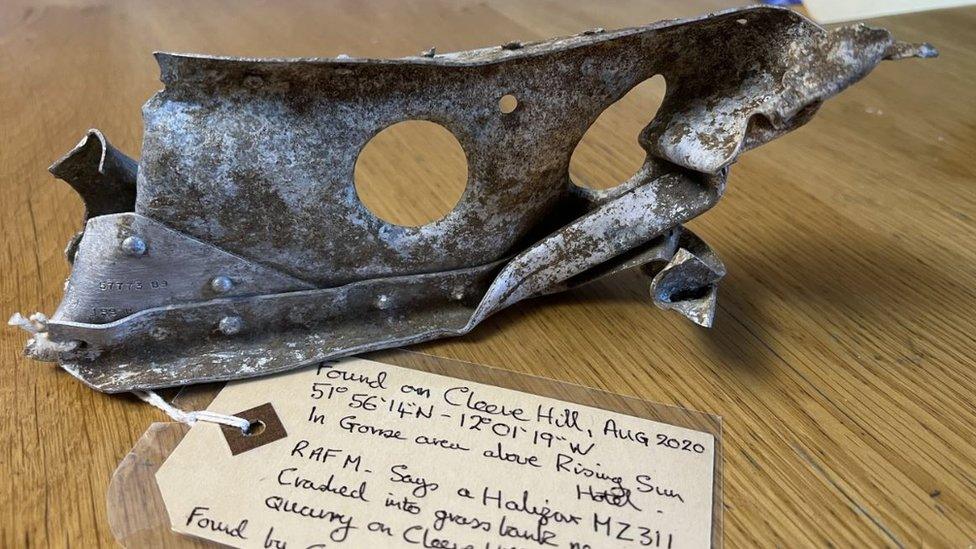 57773 B9
Found on Cleeve Hill, Aug 2020
51° 56' 14"N - 12° 01' 19"W
In Gorse area above Rising Sun
Hotel.
RAFM - Says a Halifax MZ311
Crashed into grass bank
quarry on Cleeve
Found by